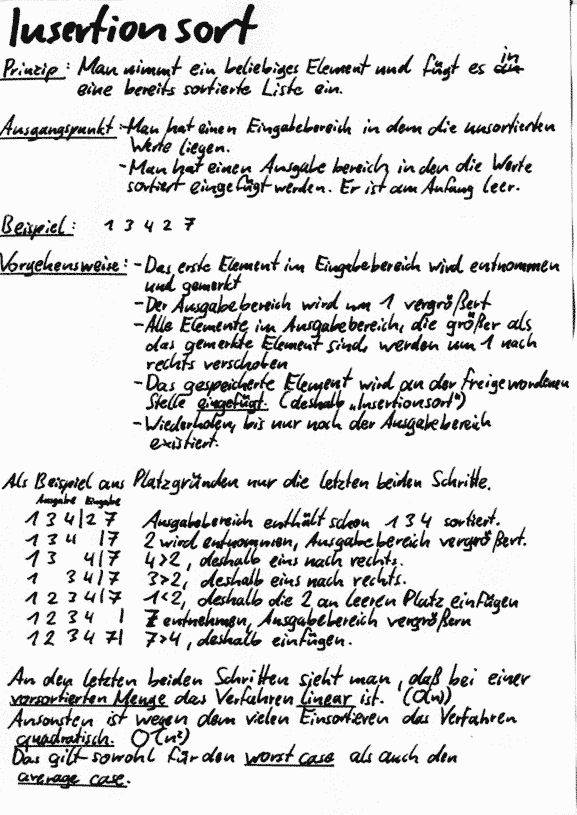 Insertionsort
Prinzip: Man nimmt ein beliebiges Element und fügt es in
eine bereits sortierte Liste ein.
Ausgangspunkt: -Man hat einen Eingabebereich in dem die unsortierten
Werte liegen.
-Man hat einen Ausgabebereich, in den die Werte
sortiert eingefügt werden. Er ist am Anfang leer.
Beispiel: 1 3 4 2 7
Vorgehensweise: -Das erste Element im Eingabebereich wird entnommen
und gemerkt
-Der Ausgabebereich wird um 1 vergrößert
-Alle Elemente im Ausgabebereich, die größer als
das gemerkte Element sind, werden um 1 nach
rechts verschoben
-Das gespeicherte Element wird an der freigewordenen
Stelle eingefügt. (deshalb „Insertionsort")
-Wiederholen, bis nur noch der Ausgabebereich
existiert.
Als Beispiel aus Platzgründen nur die letzten beiden Schritte.
Ausgabe Eingabe
1 3 4|2 7 Ausgabebereich enthält schon 1 3 4 sortiert.
1 3 4 |7 2 wird entnommen, Ausgabebereich vergrößert.
1 3 4|7 4>2, deshalb eins nach rechts.
1 3 4|7 3>2, deshalb eins nach rechts.
1 2 3 4|7 1<2, deshalb die 2 an leeren Platz einfügen
1 2 3 4 | 7 entnehmen, Ausgabebereich vergrößern
1 2 3 4 7| 7>4, deshalb einfügen.
An den letzten beiden Schritten sieht man, daß bei einer
vorsortierten Menge das Verfahren linear ist. (O(n))
Ansonsten ist wegen dem vielen Einsortieren das Verfahren
quadratisch. O(n²)
Das gilt sowohl für den worst case als auch den
average case.